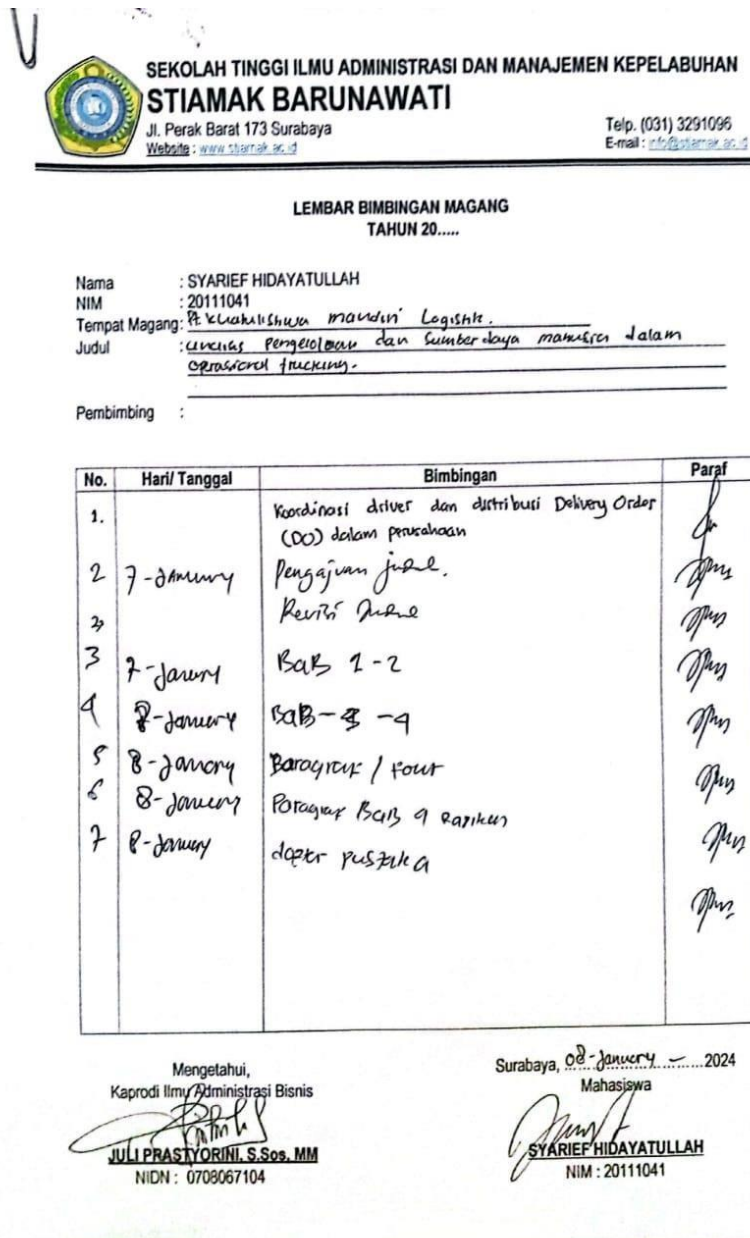 SEKOLAH TINGGI ILMU ADMINISTRASI DAN MANAJEMEN KEPELABUHAN
STIAMAK BARUNAWATI
Jl. Perak Barat 173 Surabaya
Website : www.stiamak.ac.id
Telp. (031) 3291096
E-mail : info@stiamak.ac.id
LEMBAR BIMBINGAN MAGANG
TAHUN 20.....
Nama : SYARIEF HIDAYATULLAH
NIM : 20111041
Tempat Magang: Pt mandiri Logistik.
Judul : Pengelolaan dan Sumber daya manusia dalam
operasional trucking.
Pembimbing :
No. Hari/ Tanggal Bimbingan Paraf
1. Koordinasi driver dan distribusi Delivery Order
(DO) dalam perusahaan
2 7-January Pengajuan judul.
Revisi Judul
3 7-January BAB 1-2
4 8-January BAB -4
5 8-January Baragraf / Font
6 8-January Paragraf BAB 4 Rapikan
7 8-January
Mengetahui,
Kaprodi Ilmu Administrasi Bisnis
JULI PRASTYORINI, S.Sos, MM
NIDN : 0708067104
Surabaya, 08-January 2024
Mahasiswa
SYARIEF HIDAYATULLAH
NIM : 20111041